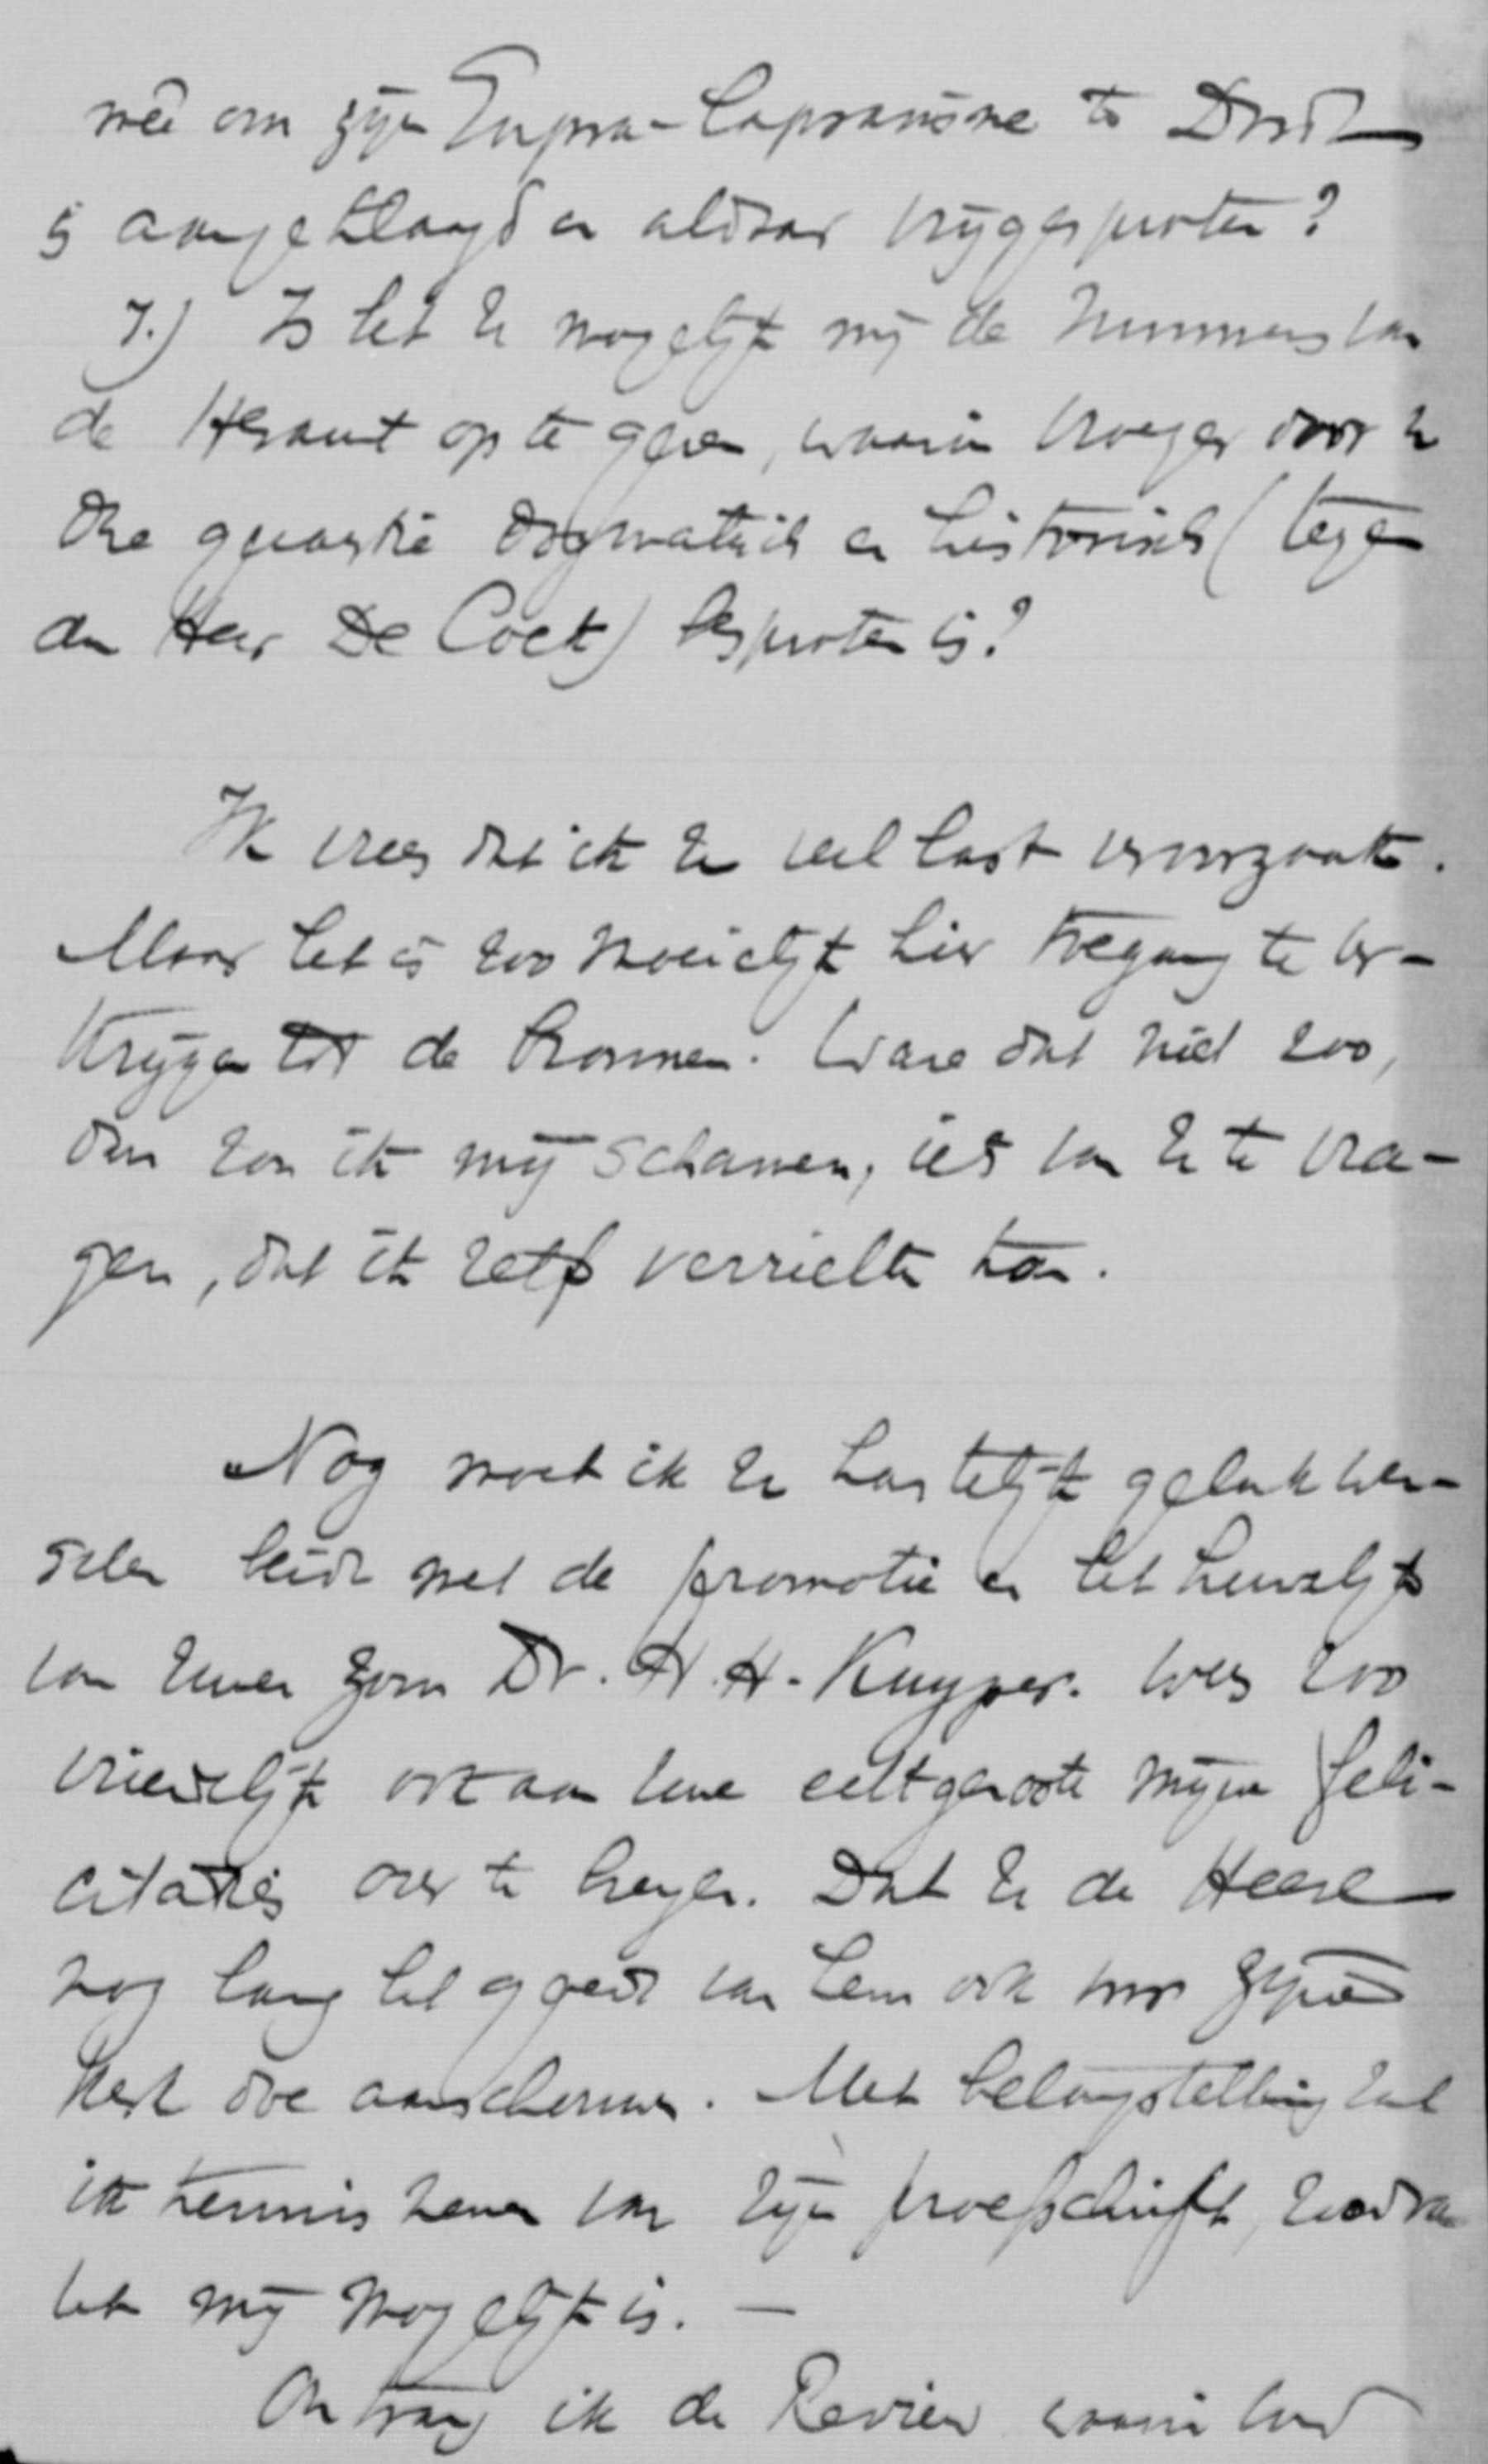 met om zijn Supra-Lapsarisme te Dordt
is aangeklaagd en aldaar vrijgesproken?
7.) Is het U mogelijk mij de nummers van
de Heraut op te geven, waarin vroeger door U
die quaestie dogmatisch en historisch (tegen
den Heer De Cock) besproken is?
Ik vrees dat ik U veel last veroorzaak.
Maar het is zoo moeielijk hier toegang te ver-
krijgen tot de bronnen. Ware dat niet zoo,
dan zou ik mij schamen, iets van U te vra-
gen, dat ik zelf verrichten kan.
Nog moet ik U hartelijk geluk wen-
schen beide met de promotie en het huwelijk
van Uwen zoon Dr. H. H. Kuyper. Wees zoo
vriendelijk ook aan Uwe echtgenoote mijne feli-
citaties over te brengen. Dat U de Heere
nog lang het goede van hem ook voor zijne
Kerk doe aanschouwen. Met belangstelling zal
ik kennis nemen van zijn proefschrift, zoodra
het mij mogelijk is. —
Ontvang ik de Review waarin